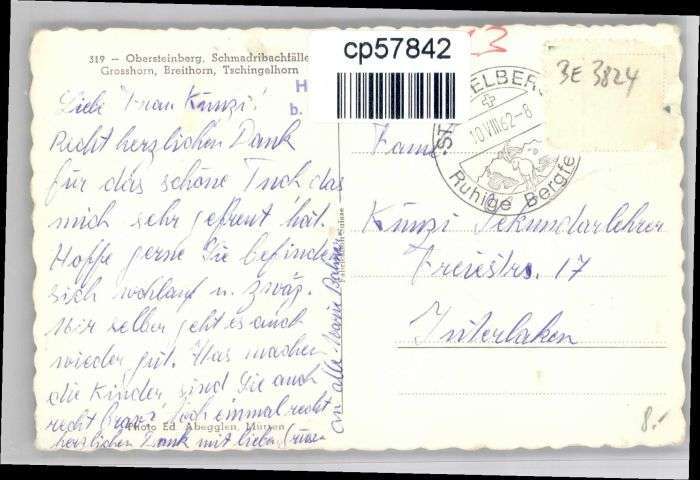 319 — Obersteinberg, Schmadribachfälle
Grosshorn, Breithorn, Tschingelhorn
Liebe Frau Künzi!
Recht herzlichen Dank
für das schöne Tuch das
mich sehr gefreut hat.
Hoffe gerne Sie befinden
sich wohlauf u. zwäg.
Mir selber geht es auch
wieder gut. Was machen
die Kinder sind Sie auch
recht brav? Noch einmal recht
herzlichen Dank mit lieben Grüssen
an alle
Photo Ed. Abegglen, Mürren
cp57842
H
b.
3
BE 3824
10 VIII 62-8
Ruhige Bergfe
Fam.
Künzi Sekundarlehrer
Freiestrs. 17
Interlaken
8.-